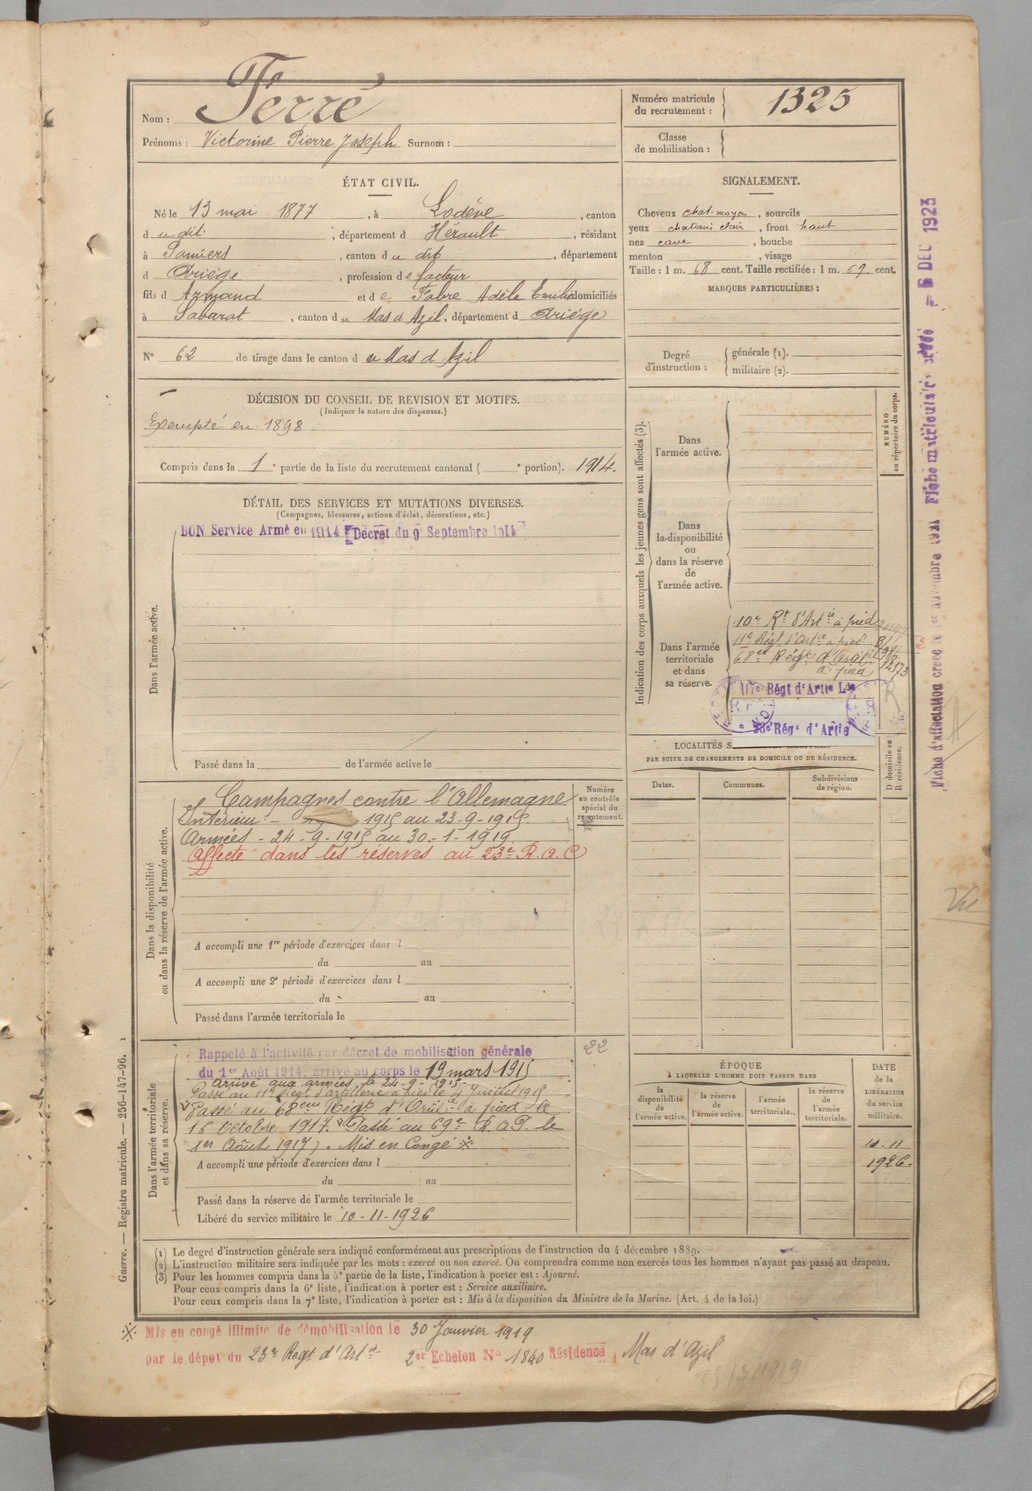 Nom : Ferré
Prénoms : Victorine Pierre Joseph Surnom :
Numéro matricule du recrutement : 1325
Classe de mobilisation :
ÉTAT CIVIL.
Né le 13 mai 1877, à Lodève, canton
d u dit, département d Hérault, résidant
à Pamiers, canton d u dit, département
d Ariège, profession d e facteur
fils d Armand et d e Fabre Adèle Emilie domiciliés
à Sabarat, canton d u Mas d'Azil, département d Ariège
N° 62 de tirage dans le canton d u Mas d'Azil
SIGNALEMENT.
Cheveux chat. moyen, sourcils
yeux chatain clair, front haut
nez cave, bouche
menton, visage
Taille : 1 m. 68 cent. Taille rectifiée : 1 m. 69 cent.
MARQUES PARTICULIÈRES :
Degré d'instruction : générale (1).
militaire (2).
DÉCISION DU CONSEIL DE REVISION ET MOTIFS.
(Indiquer la nature des dispenses.)
Exempté en 1898
Compris dans la 1e partie de la liste du recrutement cantonal ( e portion). 1914.
DÉTAIL DES SERVICES ET MUTATIONS DIVERSES.
(Campagnes, blessures, actions d'éclat, décorations, etc.)
BON Service Armé en 1914 Décret du 9 Septembre 1914
Dans l'armée active.
Passé dans la de l'armée active le
Indication des corps auxquels les jeunes gens sont affectés (3).
NUMÉRO au répertoire du corps.
Dans l'armée active.
Dans la disponibilité ou dans la réserve de l'armée active.
Dans l'armée territoriale et dans sa réserve.
10e Rt d'Artie à pied
11e Régt d'Artie à pied
68e Régt d'Artil
à pied
117e Régt d'Artie Lde
23e Régt d'Artie
LOCALITÉS
PAR SUITE DE CHANGEMENTS DE DOMICILE OU DE RÉSIDENCE.
D domicile ou R résidence.
Dates.
Communes.
Subdivisions de région.
Dans la disponibilité ou dans la réserve de l'armée active.
Numéro au contrôle spécial du recrutement.
Campagnes contre l'Allemagne
Intérieur - 1915 au 23-9-1915
Armées - 24-9-1915 au 30-1-1919
Affecté dans les réserves au 23e R.A.C
A accompli une 1re période d'exercices dans l
du au
A accompli une 2e période d'exercices dans l
du au
Passé dans l'armée territoriale le
Dans l'armée territoriale et dans sa réserve.
22
Rappelé à l'activité par décret de mobilisation générale
du 1er Août 1914, arrivé au corps le 19 mars 1915
Arrivé aux armées le 24-9-1915
Passé au 11e Régt d'artillerie à pied le 4 Juillet 1915
Passé au 68ème Régt d'Artil. à pied le
16 Octobre 1917. Passé au 69e R.A.P. le
1er Août 1917). Mis en Congé ※
A accompli une période d'exercices dans l
du au
Passé dans la réserve de l'armée territoriale le
Libéré du service militaire le 10-11-1926
ÉPOQUE
À LAQUELLE L'HOMME DOIT PASSER DANS
la disponibilité de l'armée active.
la réserve de l'armée active.
l'armée territoriale.
la réserve de l'armée territoriale.
DATE de la LIBÉRATION du service militaire.
10-11
1926.
(1) Le degré d'instruction générale sera indiqué conformément aux prescriptions de l'instruction du 4 décembre 1889.
(2) L'instruction militaire sera indiquée par les mots : exercé ou non exercé. On comprendra comme non exercés tous les hommes n'ayant pas passé au drapeau.
(3) Pour les hommes compris dans la 5e partie de la liste, l'indication à porter est : Ajourné.
Pour ceux compris dans la 6e liste, l'indication à porter est : Service auxiliaire.
Pour ceux compris dans la 7e liste, l'indication à porter est : Mis à la disposition du Ministre de la Marine. (Art. 4 de la loi.)
※ Mis en congé illimité de démobilisation le 30 Janvier 1919
par le dépôt du 23e Regt d'Art 2e Echelon N° 1840 Résidence Mas d'Azil
Guerre. — Registre matricule. — 256-147-96.
Fiche d'affectation créée le novembre 1921 Fiche matriculaire
5 DEC 1923